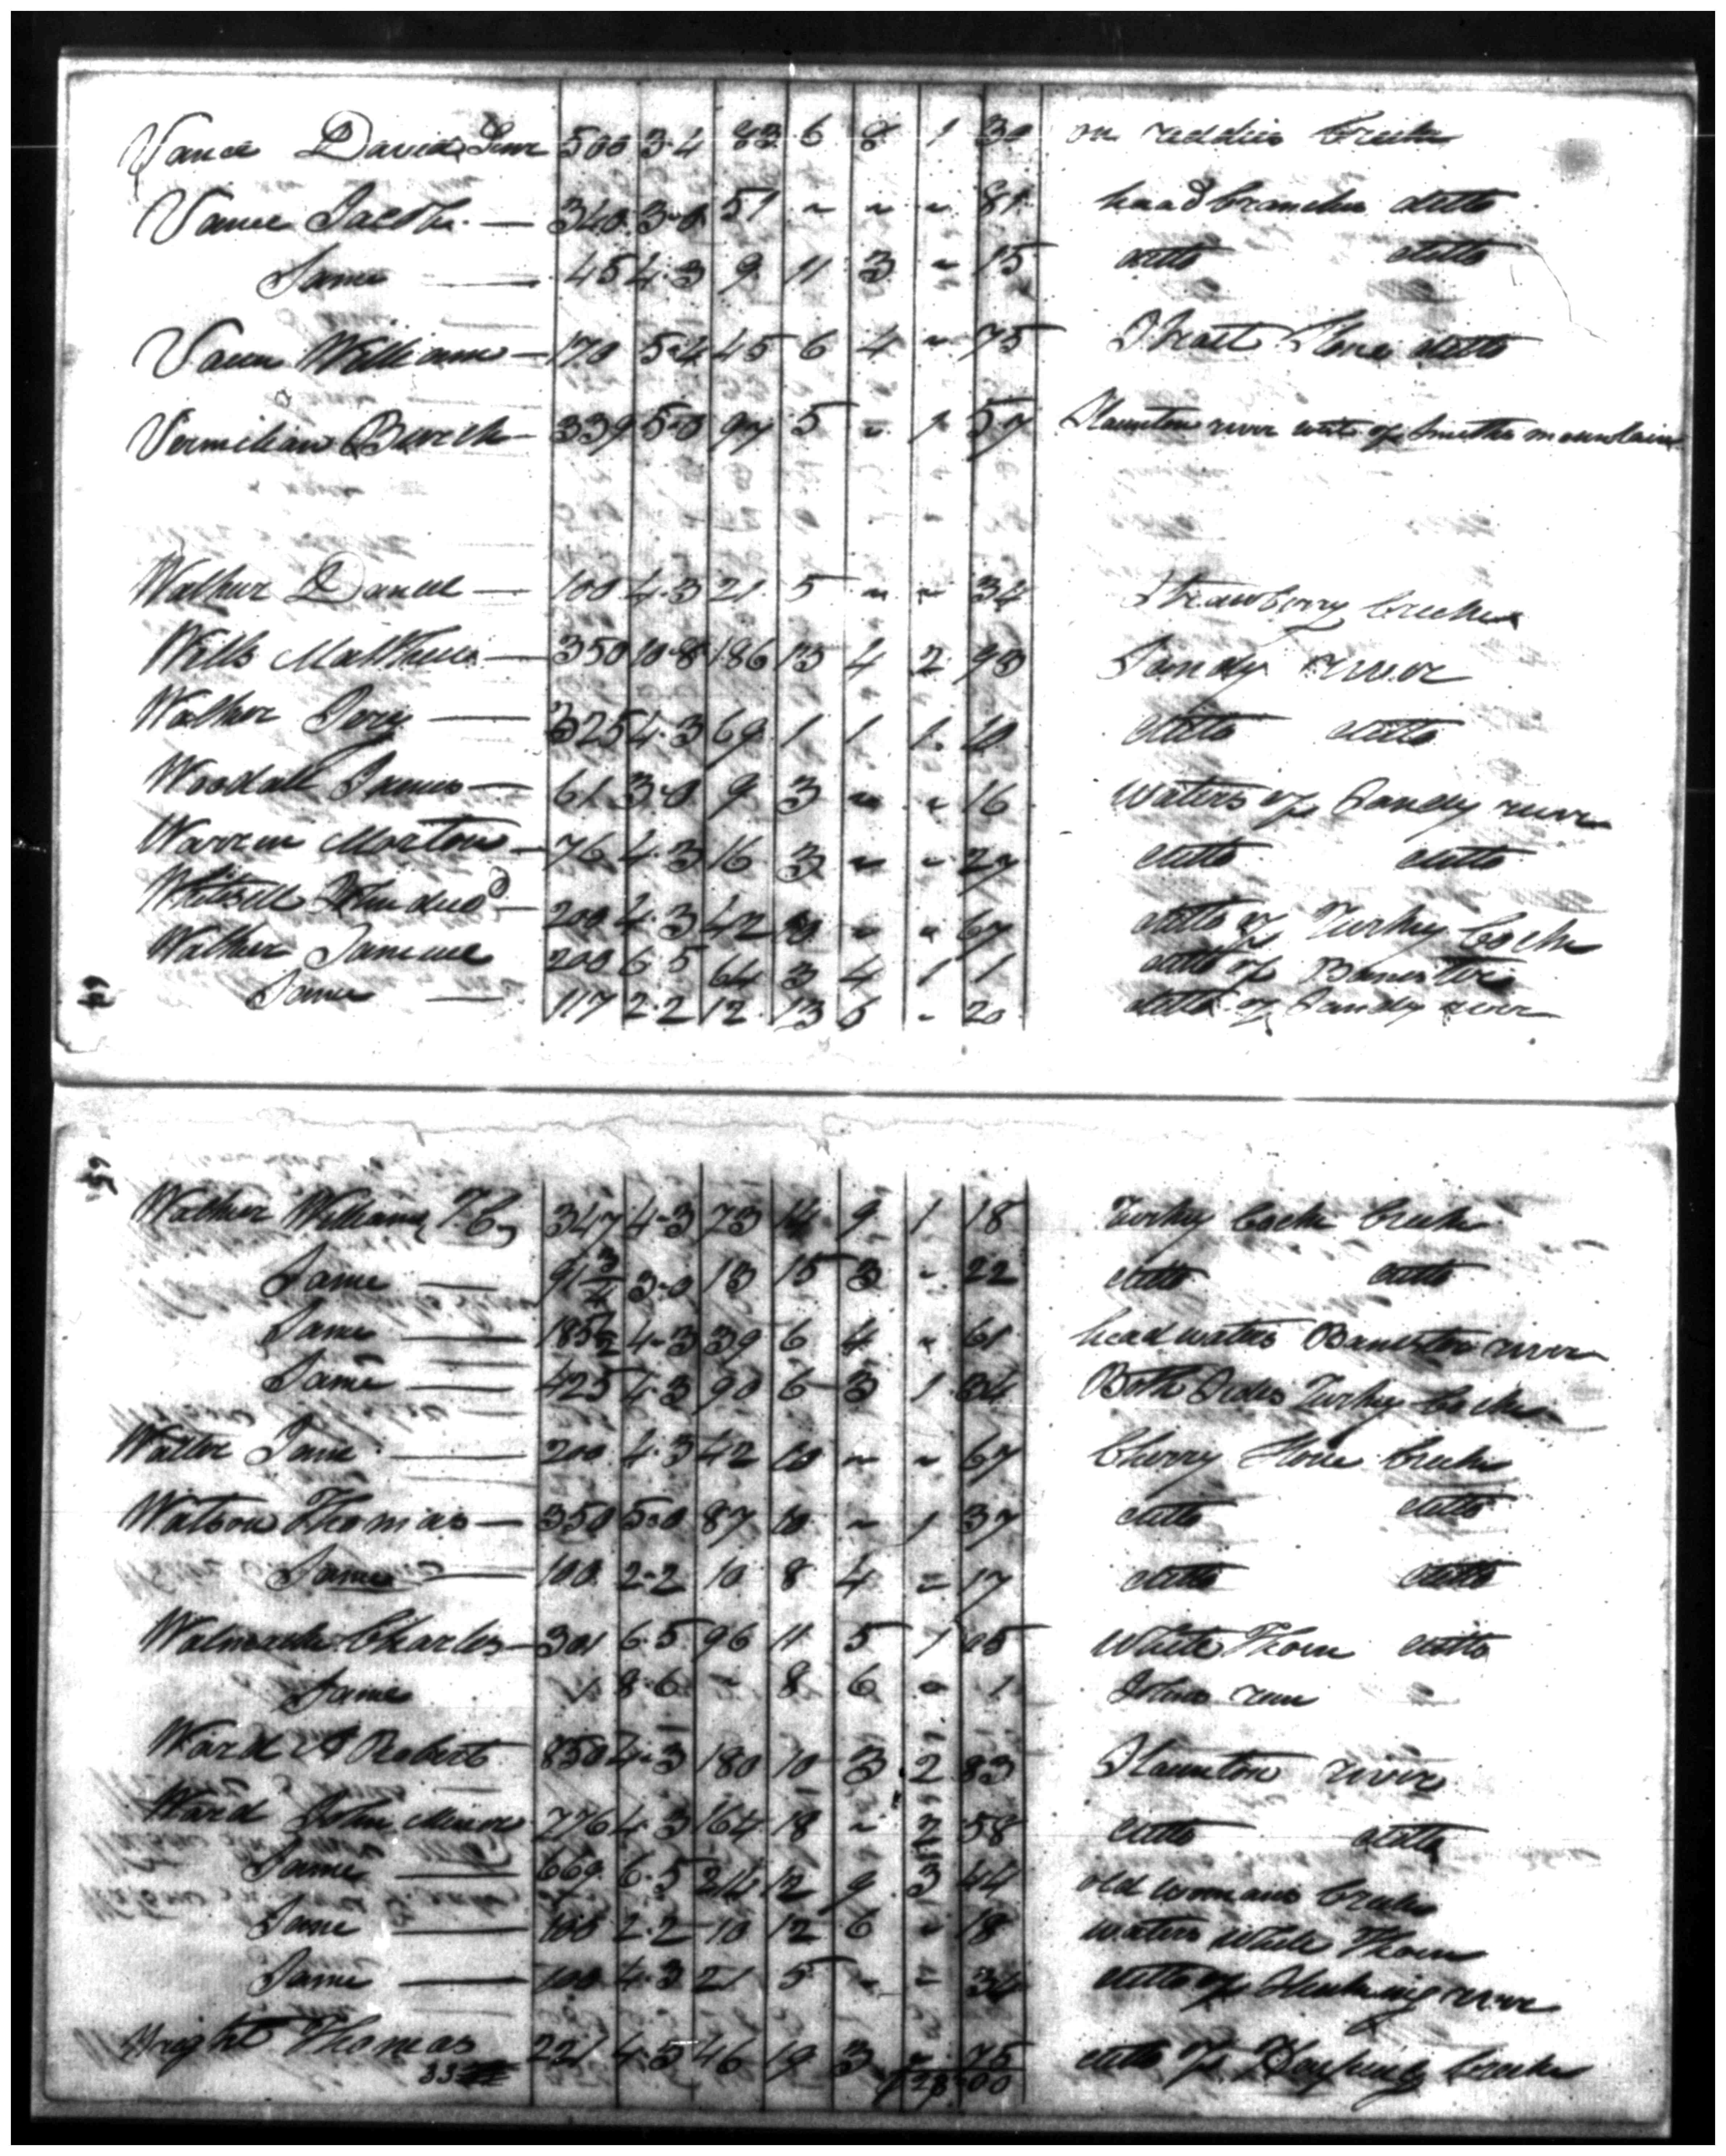 Vance David Senr 500 3-4 83 6 8 1 30 on reddies Creeke
Vance Jacob — 340 3-0 51 " " " 81 head branches ditto
Same — 45 4-3 9 11 3 " 15 ditto ditto
William — 170 5-4 45 6 4 " 75 ditto
Vermilian Burch 339 5-9 97 5 " 1 57 Staunton river west of Smiths mountain
Walker Daniel — 100 4-3 21 5 " " 34 Strawberry Creeke
Wills Matthew — 350 10-8 186 13 4 2 93 Sandy river
Walker — 325 4-3 69 1 1 1 10 ditto ditto
Woodall James — 61 3-0 9 3 " " 16 Waters of Sandy river
Warren Morton — 76 4-3 16 3 " " 27 ditto ditto
200 4-3 42 10 " " 67 ditto of Turkey Cocke
Walker Sammuel 200 6-5 64 3 4 1 1 ditto of Banister
Same — 117 2-2 12 13 6 " 20 ditto of Sandy river
Walker William T.C. 347 4-3 73 14 9 1 18 Turkey Cocke Creeke
Same — 91 3/4 3-0 13 15 3 " 22 ditto ditto
Same — 185 1/2 4-3 39 6 4 " 61 head waters Banister river
Same — 425 4-3 90 6 3 1 34 Both Sides Turkey Cocke
Jane — 200 4-3 42 10 " " 67 Cherry Stone Creeke
Watson Thomas — 350 5-0 87 10 " 1 37 ditto ditto
Same — 100 2-2 10 8 4 " 17 ditto ditto
Charles — 301 6-5 96 11 5 1 05 White Thorn ditto
Same 1 8-6 " 8 6 " 1 Johns run
Ward Robert 850 4-3 180 10 3 2 83 Staunton river
Ward John Minor 776 4-3 164 18 " 2 58 ditto ditto
Same — 669 6-5 214 12 9 3 44 old womans Creeke
Same — 100 2-2 10 12 6 " 18 waters White Thorn
Same — 100 4-3 21 5 " " 34 ditto of river
Wright Thomas 221 4-3 46 19 3 " 75 ditto of Creeke
33